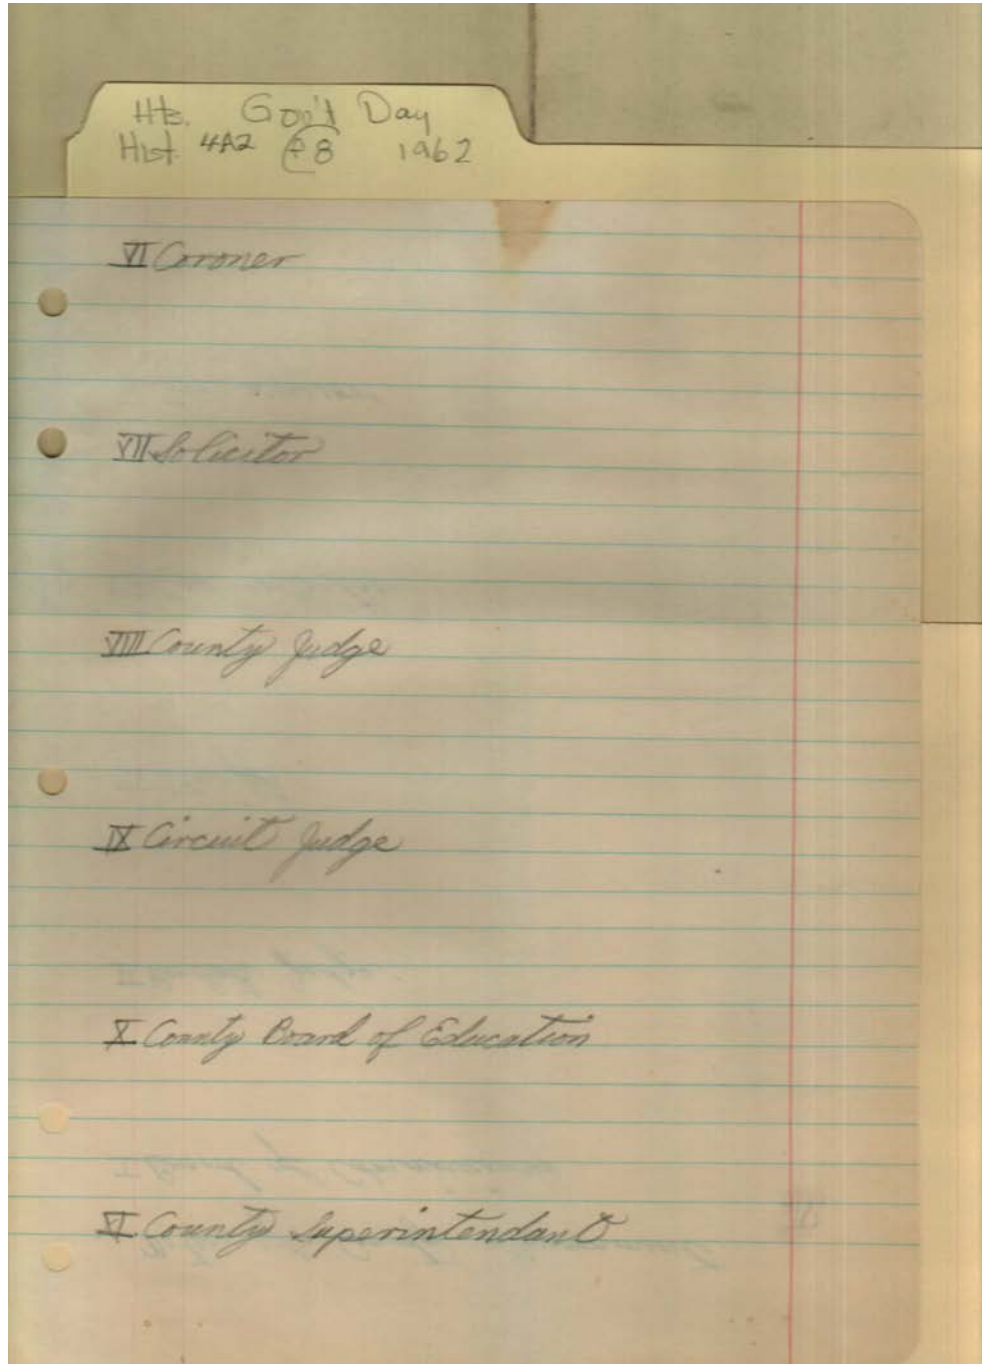 Hts. Gov't Day
Hist. 4A2 P8 1962
VI Coroner
VII Solicitor
VIII County Judge
IX Circuit Judge
X County Board of Education
XI County Superintendant